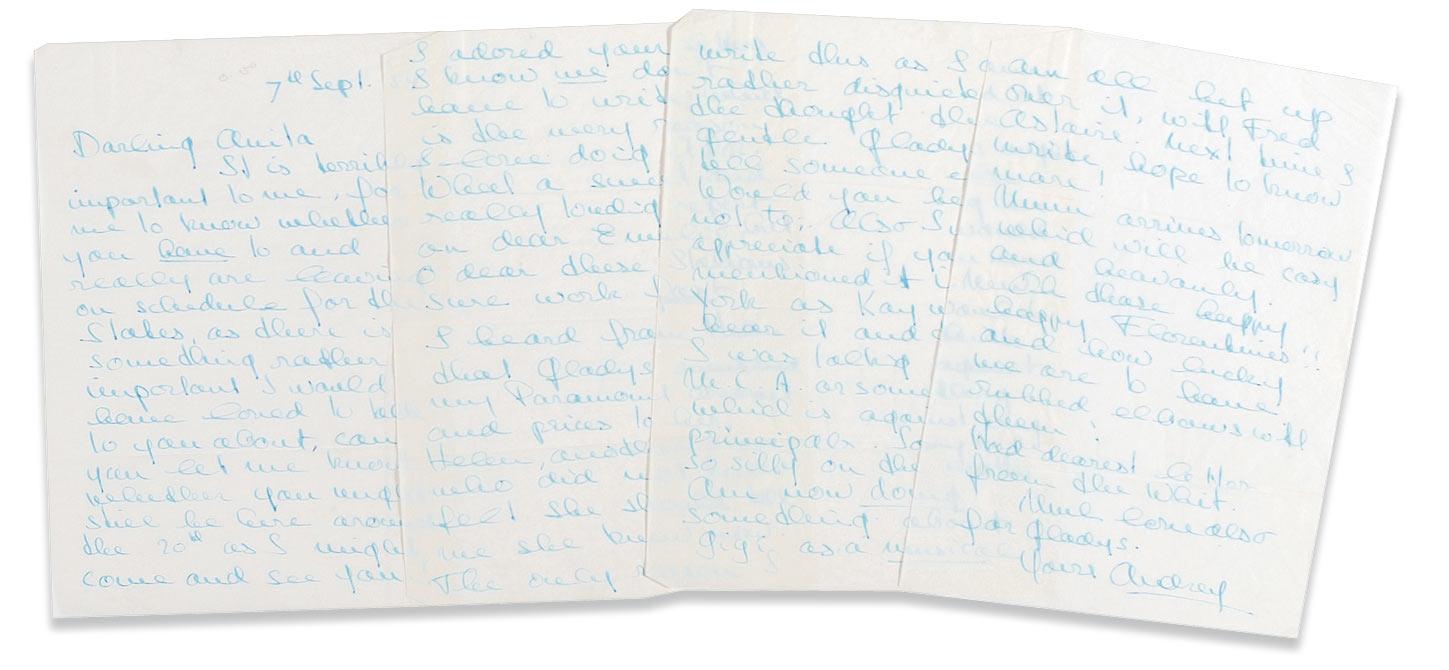 7th Sept.
Darling Anita
It is terrib
important to me, for
me to know whethe
you have to and
really are leavin
on schedule for the
States, as there is
something rather
important I would
have loved to talk
to you about, can
you let me know
whether you migh
still be here aroun
the 20th as I migh
come and see you
I adored your
I know we do
have to writ
is the very
I love doing
What a swee
really touching
on dear Em
O dear these
sure work
I heard from
that Gladys
my Paramoun
and prices to
Helen, anoth
who did n
feel she sh
me she kn
The only
write this as I a
rather disquiete
the thought the
gentle Gladys
tell someone e
Would you be
not to. Also I w
appreciate if you
mentioned it i
York as Kay wo
hear it and
I was talking
M.C.A. or some
which is agains
principals. So
so silly on the
Am now doing
something also
Gigi, as a musical
am all het up
over it, with Fred
Astaire. Next time I
write, hope to know
more!
Mum arrives tomorrow
which will be cosy
and heavenly.
Oh those happy
happy Florentines!!
and how lucky
we are to have
rubbed elbows with
them!
Had dearest letter
from the Whit.
Much love also
for Gladys.
Yours Audrey